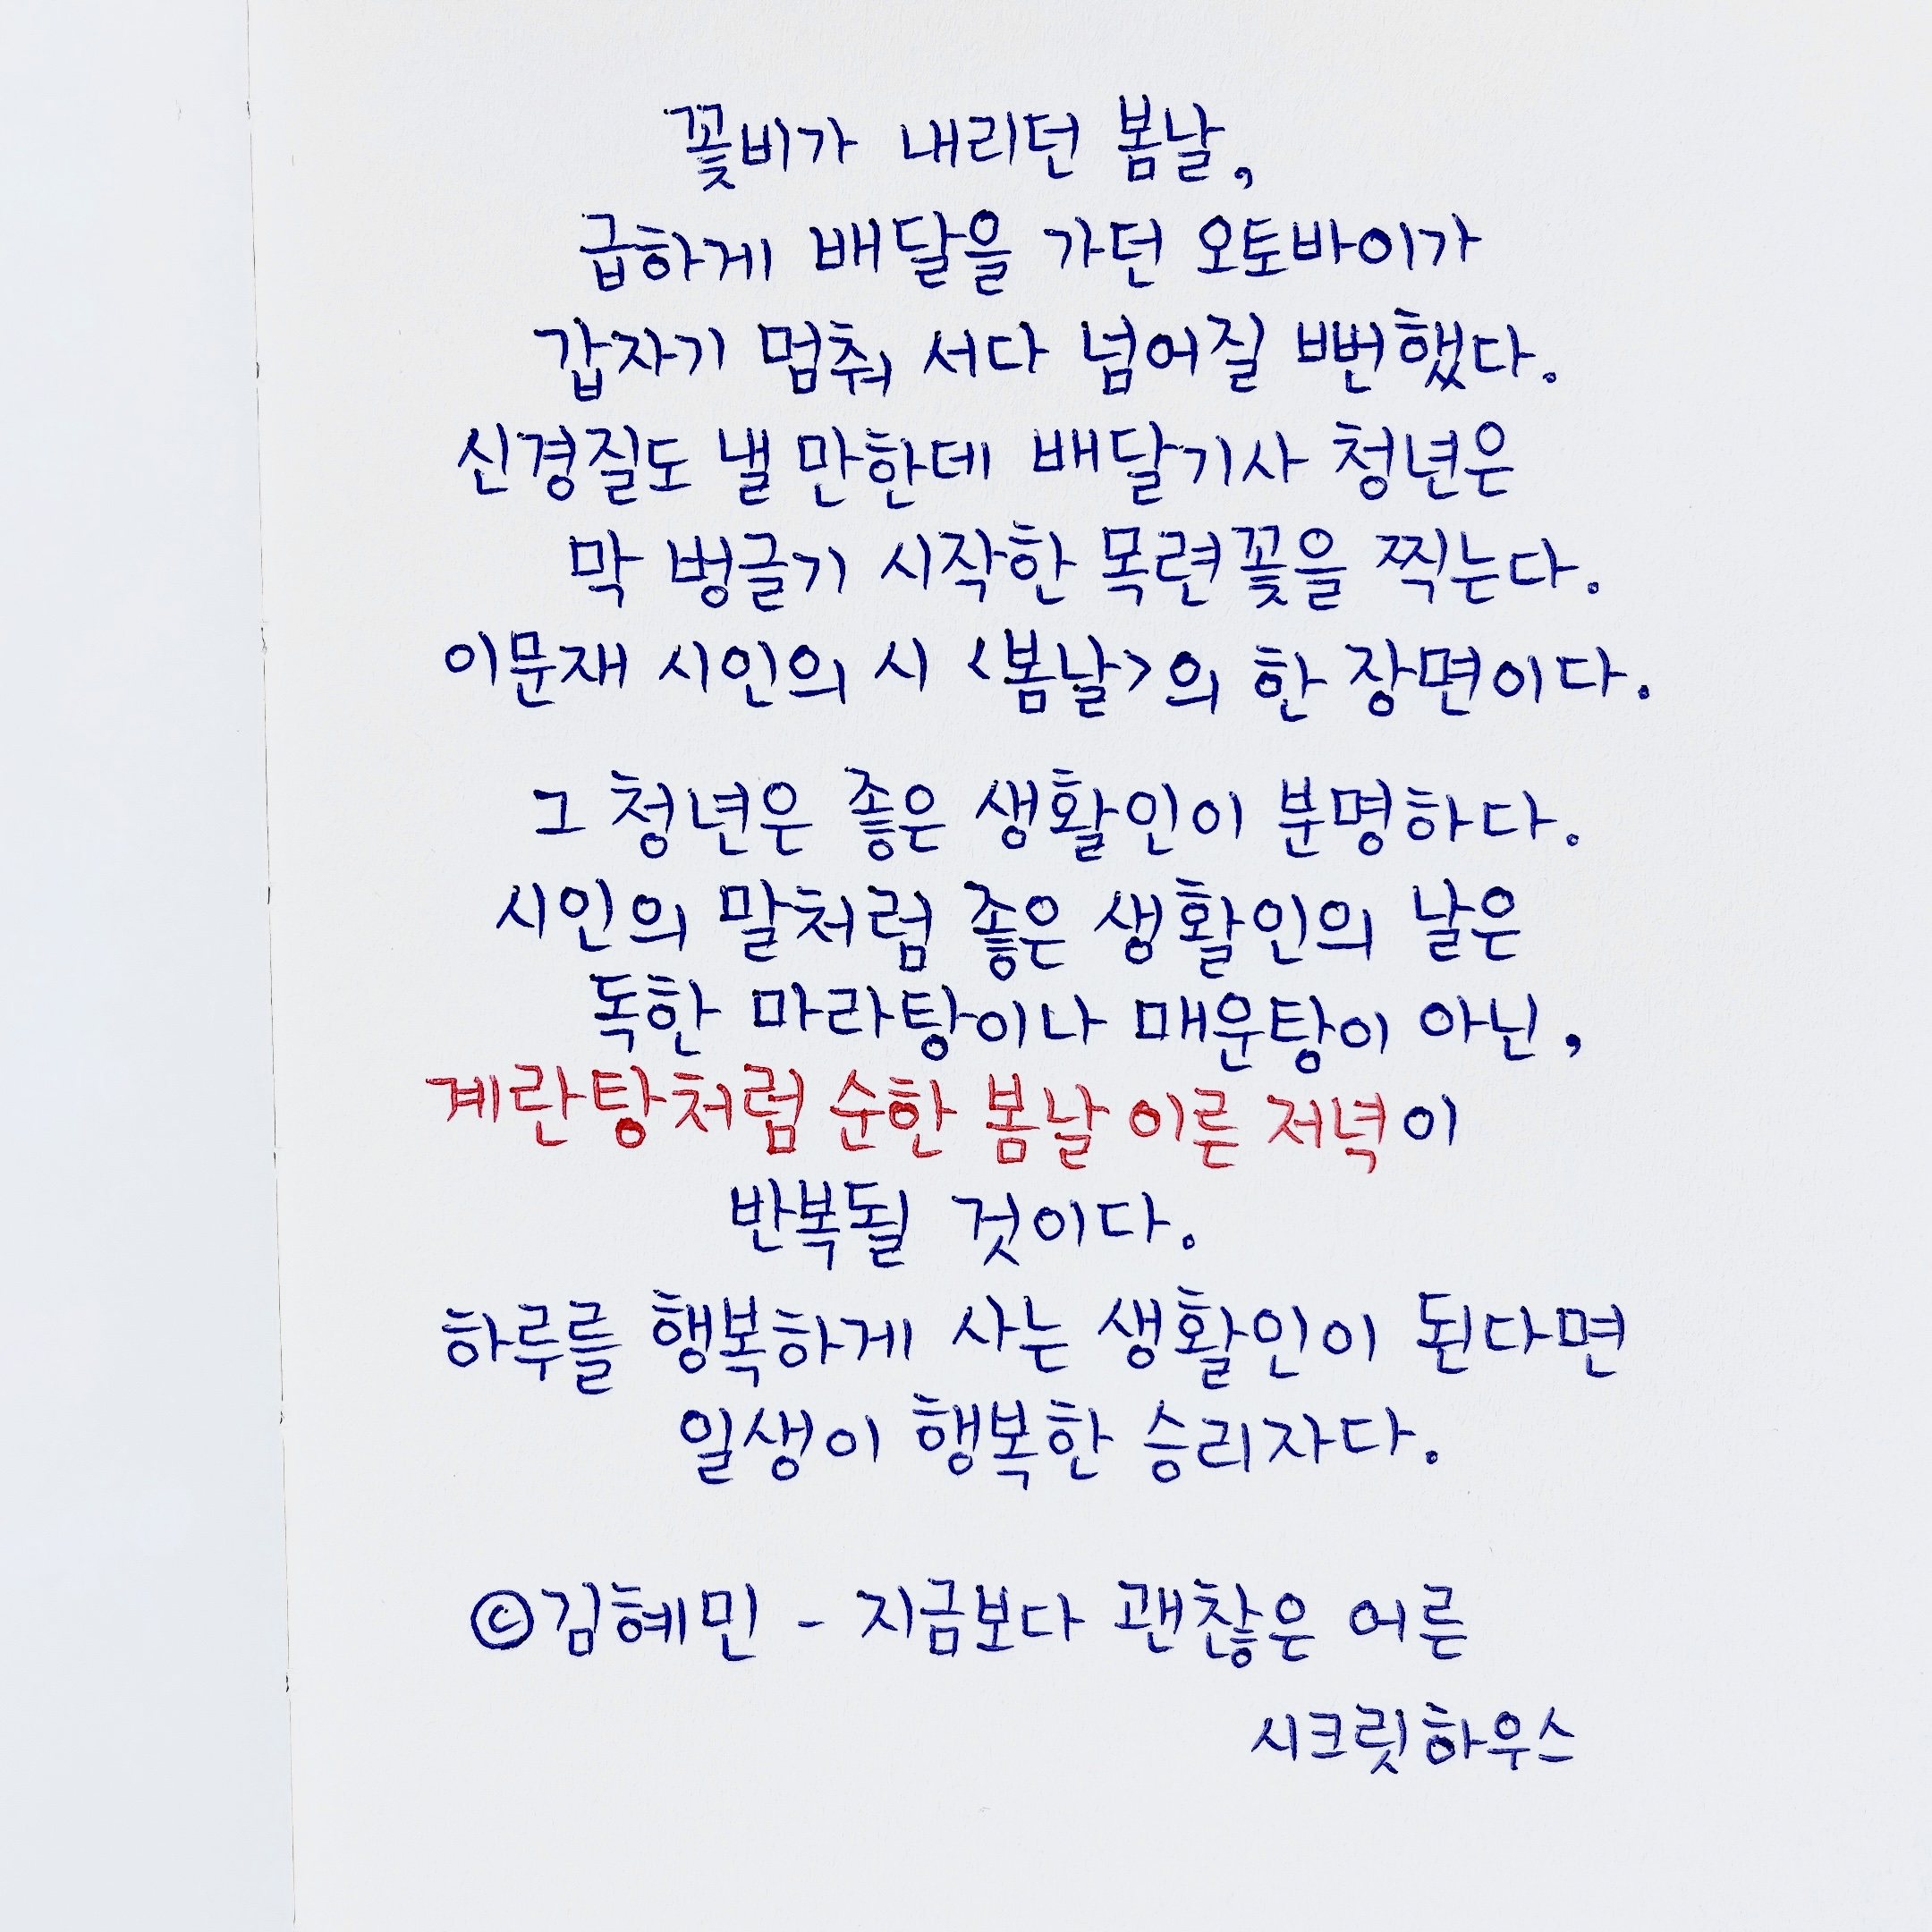 꽃비가 내리던 봄날,
급하게 배달을 가던 오토바이가
갑자기 멈춰 서다 넘어질 뻔했다.
신경질도 낼 만한데 배달기사 청년은
막 벙글기 시작한 목련꽃을 찍는다.
이문재 시인의 시 <봄날>의 한 장면이다.
그 청년은 좋은 생활인이 분명하다.
시인의 말처럼 좋은 생활인의 날은
독한 마라탕이나 매운탕이 아닌,
계란탕처럼 순한 봄날 이른 저녁이
반복될 것이다.
하루를 행복하게 사는 생활인이 된다면
일생이 행복한 승리자다.
©김혜민 - 지금보다 괜찮은 어른
시크릿하우스